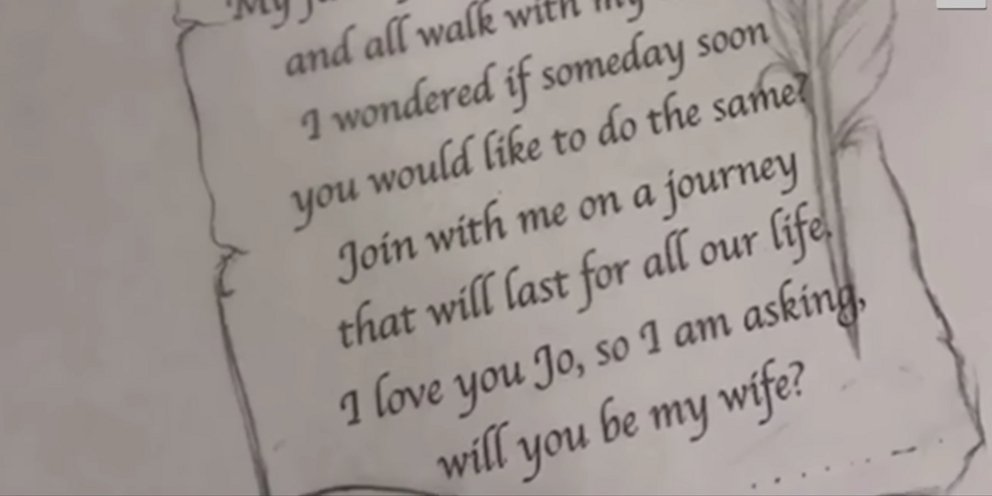 My
and all walk with my
I wondered if someday soon
you would like to do the same?
Join with me on a journey
that will last for all our life.
I love you Jo, so I am asking,
will you be my wife?